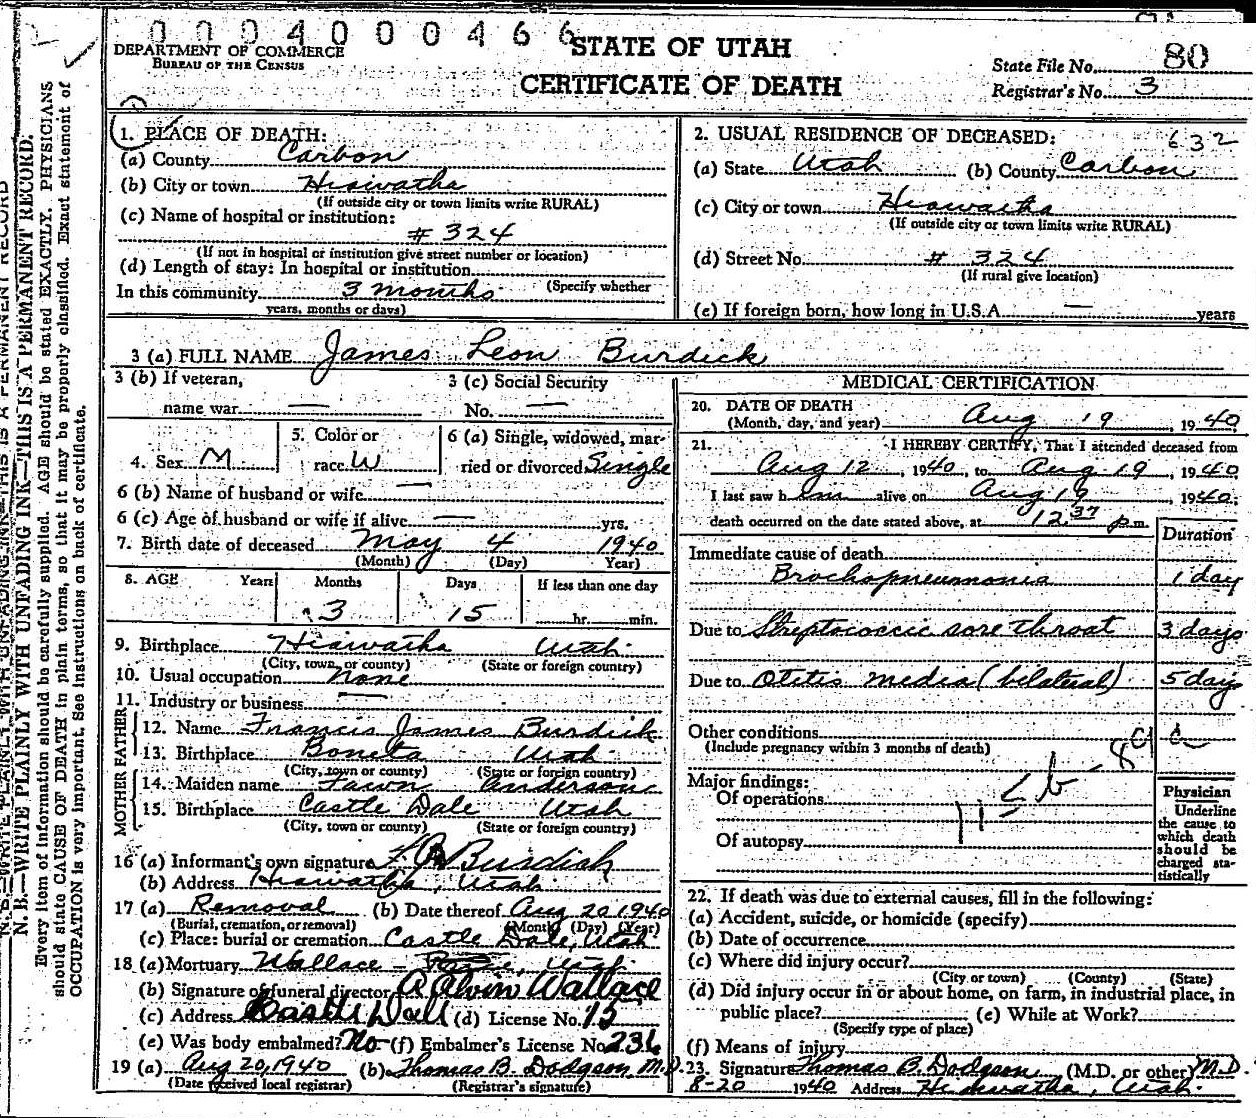 0004000466
DEPARTMENT OF COMMERCE
BUREAU OF THE CENSUS
STATE OF UTAH
CERTIFICATE OF DEATH
State File No. 80
Registrar's No. 3
N. B.—WRITE PLAINLY WITH UNFADING INK—THIS IS A PERMANENT RECORD.
Every item of information should be carefully supplied. AGE should be stated EXACTLY. PHYSICIANS
should state CAUSE OF DEATH in plain terms, so that it may be properly classified. Exact statement of
OCCUPATION is very important. See instructions on back of certificate.
1. PLACE OF DEATH:
(a) County Carbon
(b) City or town Hiawatha
(If outside city or town limits write RURAL)
(c) Name of hospital or institution:
# 324
(If not in hospital or institution give street number or location)
(d) Length of stay: In hospital or institution
(Specify whether
In this community 3 months
years, months or days)
2. USUAL RESIDENCE OF DECEASED: 632
(a) State Utah (b) County Carbon
(c) City or town Hiawatha
(If outside city or town limits write RURAL)
(d) Street No. # 324
(If rural give location)
(e) If foreign born, how long in U.S.A. — years
3 (a) FULL NAME James Leon Burdick
3 (b) If veteran,
name war —
3 (c) Social Security
No. —
4. Sex M
5. Color or
race W
6 (a) Single, widowed, mar-
ried or divorced Single
6 (b) Name of husband or wife —
6 (c) Age of husband or wife if alive — yrs.
7. Birth date of deceased May 4 1940
(Month) (Day) Year)
8. AGE Years Months Days If less than one day
3 15 hr. min.
9. Birthplace Hiawatha Utah
(City, town, or county) (State or foreign country)
10. Usual occupation None
11. Industry or business —
FATHER
12. Name Francis James Burdick
13. Birthplace Boneta Utah
(City, town or county) (State or foreign country)
MOTHER
14. Maiden name Fawn Anderson
15. Birthplace Castle Dale Utah
(City, town or county) (State or foreign country)
16 (a) Informant's own signature Burdick
(b) Address Hiawatha, Utah
17 (a) Removal (b) Date thereof Aug 20 1940
(Burial, cremation, or removal) (Month) (Day) (Year)
(c) Place: burial or cremation Castle Dale, Utah
18 (a) Mortuary Wallace Utah
(b) Signature of funeral director A Alvin Wallace
(c) Address Castle Dale (d) License No. 15
(e) Was body embalmed? No (f) Embalmer's License No. 236
19 (a) Aug 20, 1940 (b) Thomas B. Dodgson M.D.
(Date received local registrar) (Registrar's signature)
MEDICAL CERTIFICATION
20. DATE OF DEATH
(Month, day, and year) Aug 19, 1940
21. I HEREBY CERTIFY, That I attended deceased from
Aug 12, 1940, to Aug 19, 1940,
I last saw him alive on Aug 19, 1940;
death occurred on the date stated above, at 12:37 p.m.
Duration
Immediate cause of death
Brochopneumonia 1 day
Due to Streptococcic sore throat 3 days
Due to Otitis media (bilateral) 5 days
Other conditions
(Include pregnancy within 3 months of death)
Major findings:
Of operations
Of autopsy
Physician
Underline
the cause to
which death
should be
charged sta-
tistically
22. If death was due to external causes, fill in the following:
(a) Accident, suicide, or homicide (specify)
(b) Date of occurrence
(c) Where did injury occur?
(City or town) (County) (State)
(d) Did injury occur in or about home, on farm, in industrial place, in
public place? (e) While at Work?
(Specify type of place)
(f) Means of injury
23. Signature Thomas B. Dodgson (M.D. or other) M.D.
8-20 1940 Address Hiawatha, Utah